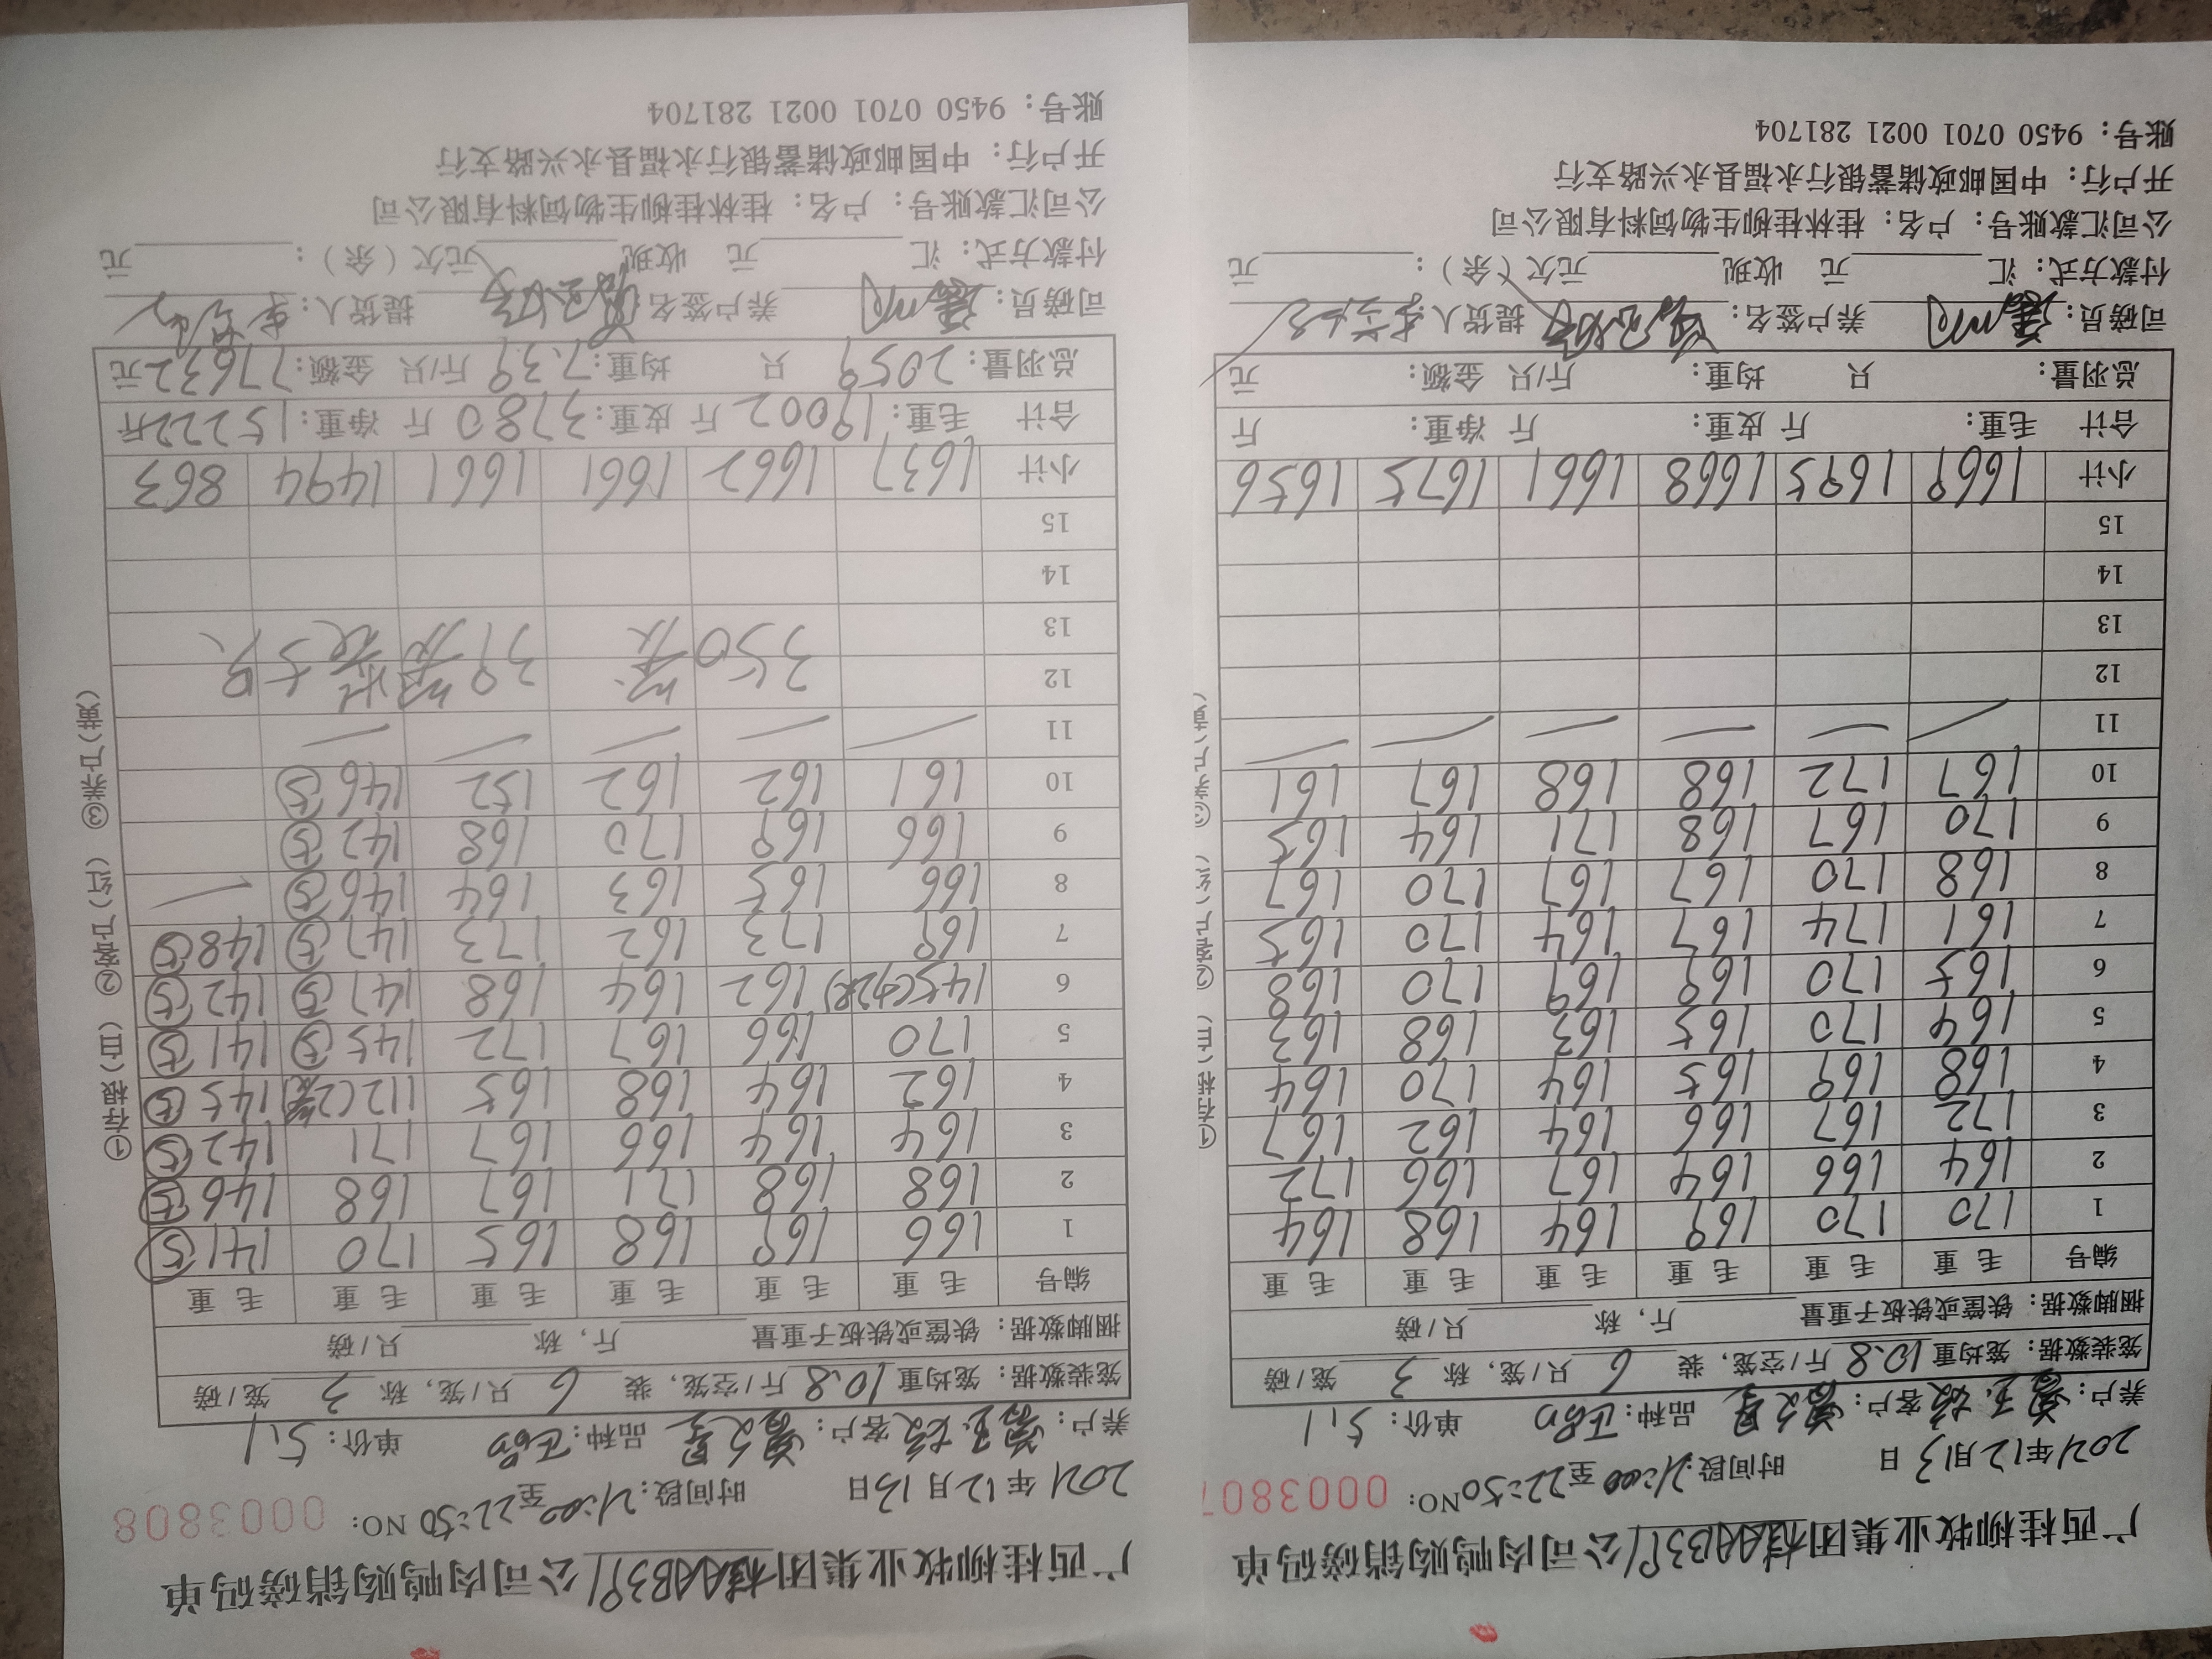 广西桂柳牧业集团桂林AAB391公司肉鸭购销磅码单
2021年12月13日 时间段:21:00至22:50 NO: 0003807
养户: 客户: 品种: 单价: 5.1
笼装数据: 笼均重10.8斤/空笼, 装 6 只/笼, 称 3 笼/磅
捆脚数据: 铁筐或铁板子重量 斤, 称 只/磅
编号 毛重 毛重 毛重 毛重 毛重 毛重
1 170 170 169 164 168 164
2 164 166 164 167 166 172
3 172 167 166 164 162 167
4 168 169 165 164 170 164
5 164 170 165 163 168 163
6 165 170 169 169 170 168
7 161 174 167 164 170 165
8 168 170 167 167 170 167
9 170 167 168 171 164 165
10 167 172 168 168 167 161
11 — — — — — —
12
13
14
15
小计 1669 1695 1668 1661 1675 1656
合计 毛重: 斤 皮重: 斤 净重: 斤
总羽量: 只 均重: 斤/只 金额: 元
司磅员: 养户签名: 提货人:
付款方式: 汇 元 收现 元欠(余): 元
公司汇款账号: 户名: 桂林桂柳生物饲料有限公司
开户行: 中国邮政储蓄银行永福县永兴路支行
账号: 9450 0701 0021 281704
广西桂柳牧业集团桂林AAB391公司肉鸭购销磅码单
2021年12月13日 时间段:21:00至22:50 NO: 0003808
养户: 客户: 品种: 单价: 5.1
笼装数据: 笼均重10.8斤/空笼, 装 6 只/笼, 称 3 笼/磅
捆脚数据: 铁筐或铁板子重量 斤, 称 只/磅
编号 毛重 毛重 毛重 毛重 毛重 毛重
1 166 169 168 165 170 141⑤
2 168 168 171 167 168 146⑤
3 164 164 166 167 171 142⑤
4 162 164 168 165 112(2笼) 145⑤
5 170 166 167 172 145⑤ 141⑤
6 145(2只) 162 164 168 147⑤ 142⑤
7 169 173 162 173 147⑤ 148⑤
8 166 165 163 164 146⑤ —
9 166 169 170 168 142⑤
10 161 162 162 152 146⑤
11 — — — — —
12
13 350 39
14
15
小计 1637 1662 1661 1661 1494 863
合计 毛重: 19002 斤 皮重: 3780 斤 净重: 15222斤
总羽量: 2059 只 均重: 7.39 斤/只 金额: 77632元
司磅员: 养户签名: 提货人:
付款方式: 汇 元 收现 元欠(余): 元
公司汇款账号: 户名: 桂林桂柳生物饲料有限公司
开户行: 中国邮政储蓄银行永福县永兴路支行
账号: 9450 0701 0021 281704
①存根(白) ②客户(红) ③养户(黄)